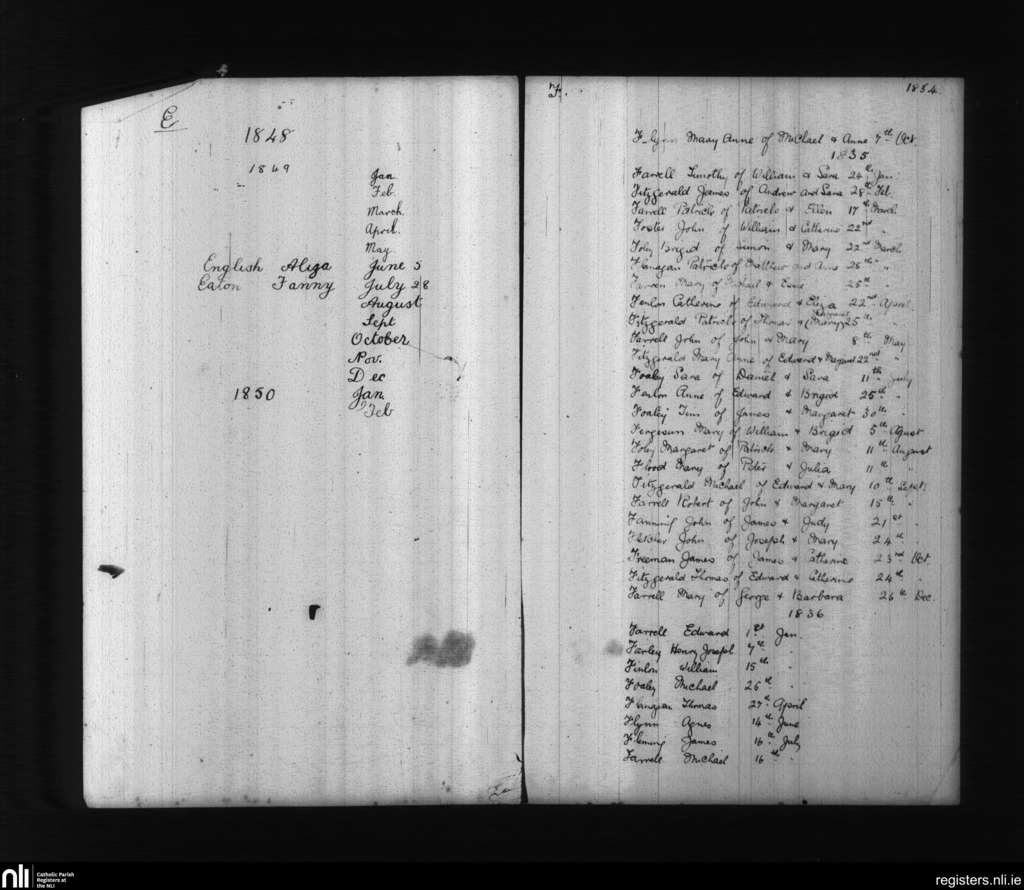 E
1848
1849
Jan
Feb.
March.
April.
May
English Aliza June 5
Eaton Fanny July 28
August
Sept
October
Nov.
Dec
1850 Jan
Feb
F. 1854
Flynn Mary Anne of Michael & Anne 7th Oct.
1835
Farrell Timothy of William & Sara 24th Jan
Fitzgerald James of Andrew and Sara 28th Feb.
Farrell Patrick of Patrick & Ellen 17th March
Foster John of William & Catherine 22nd "
Foly Brigid of Simon & Mary 22nd March
Flanagan Patrick of Matthew and Anne 26th "
Farren Mary of Michael & 25th "
Fenlon Catherine of Edward & Eliza 22nd April
Fitzgerald Patrick of Thomas & (Margaret) Mary 25th "
Farrell John of John & Mary 8th May
Fitzgerald Mary Anne of Edward & Margaret 22nd "
Foaley Sara of Daniel & Sara 11th July
Fenlon Anne of Edward & Brigid 25th "
Foaley Tim of James & Margaret 30th "
Fergeson Mary of William & Brigid 5th Agust
Foly Margaret of Patrick & Mary 11th August
Flood Mary of Peter & Julia 11th "
Fitzgerald Michael of Edward & Mary 10th Sept.
Farrell Robert of John & Margaret 15th "
Fanning John of James & Judy 21st "
John of Joseph & Mary 24th "
Freeman James of James & Catherine 23rd Oct.
Fitzgerald Thomas of Edward & Catherine 24th "
Farrell Mary of George & Barbara 26th Dec.
1836
Farrell Edward 1st Jan
Farley Henry Joseph 7th "
Finlon William 15th "
Foaley Michael 26th "
Flanagan Thomas 27th April
Flynn Agnes 14th June
Fleming James 16th July
Farrell Michael 16th "
nli Catholic Parish
Registers at
the NLI
registers.nli.ie